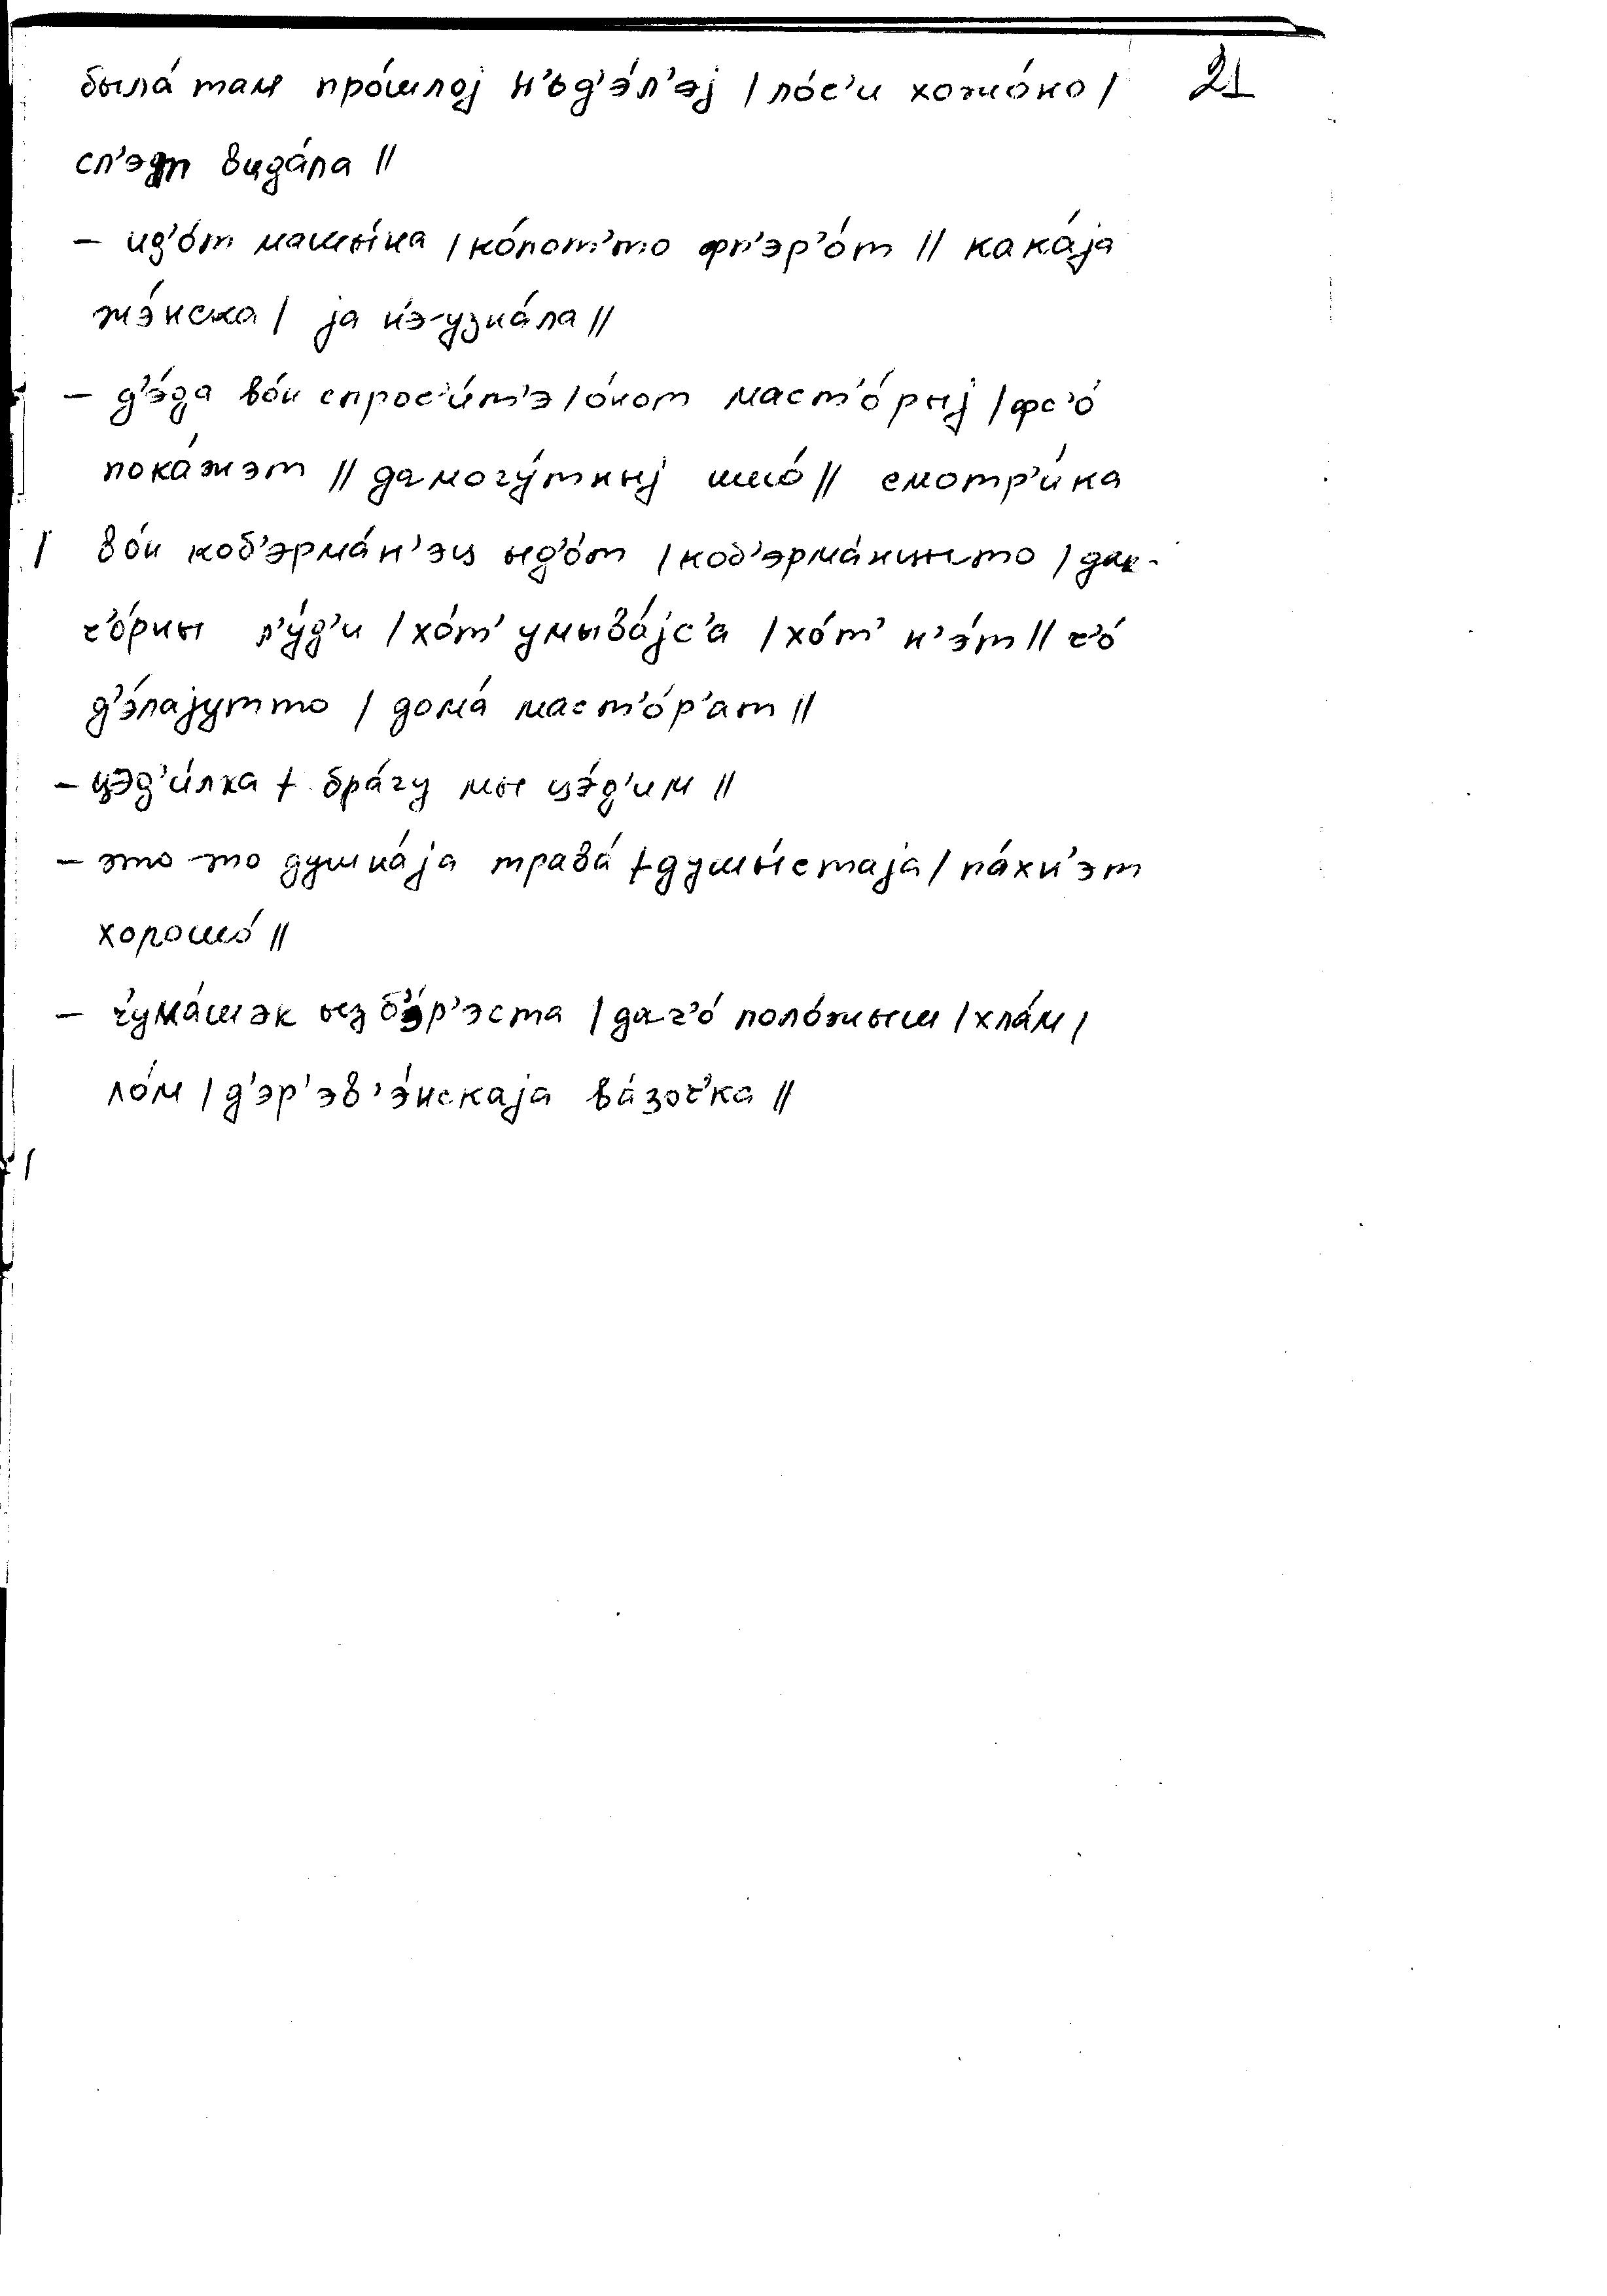 была́ там про́шлој н'ьд'э́л'эј | ло́с'и хожо́но | 21
сл'эт вида́ла ||
– ид'о́т машы́на | ко́пот'то фп'эр'о́т || кака́ја
жэ́нска | ја н'э-узна́ла ||
– д'э́да во́н спрос'и́т'э | о́нот маст'о́рыј | фс'о́
пока́жэт || да могу́тныј шшо́ || смотр'и́ка
| во́н коб'эрма́н'эц ыд'о́т | коб'эрма́нцыто | дак-
ч'о́рны л'у́д'и | хо́т' умыва́јс'а | хо́т' н'э́т || ч'о́
д'э́лајутто | дома́ маст'о́р'ат ||
– цэд'и́лка + бра́гу мы цэ́д'им ||
– это-то душна́ја трава́ + душы́стаја | па́хн'эт
хорошо́ ||
– ч'ума́шэк ыз б'э́р'эста | да ч'о́ поло́жыш | хла́м |
ло́м | д'эр'эв'э́нскаја ва́зоч'ка ||